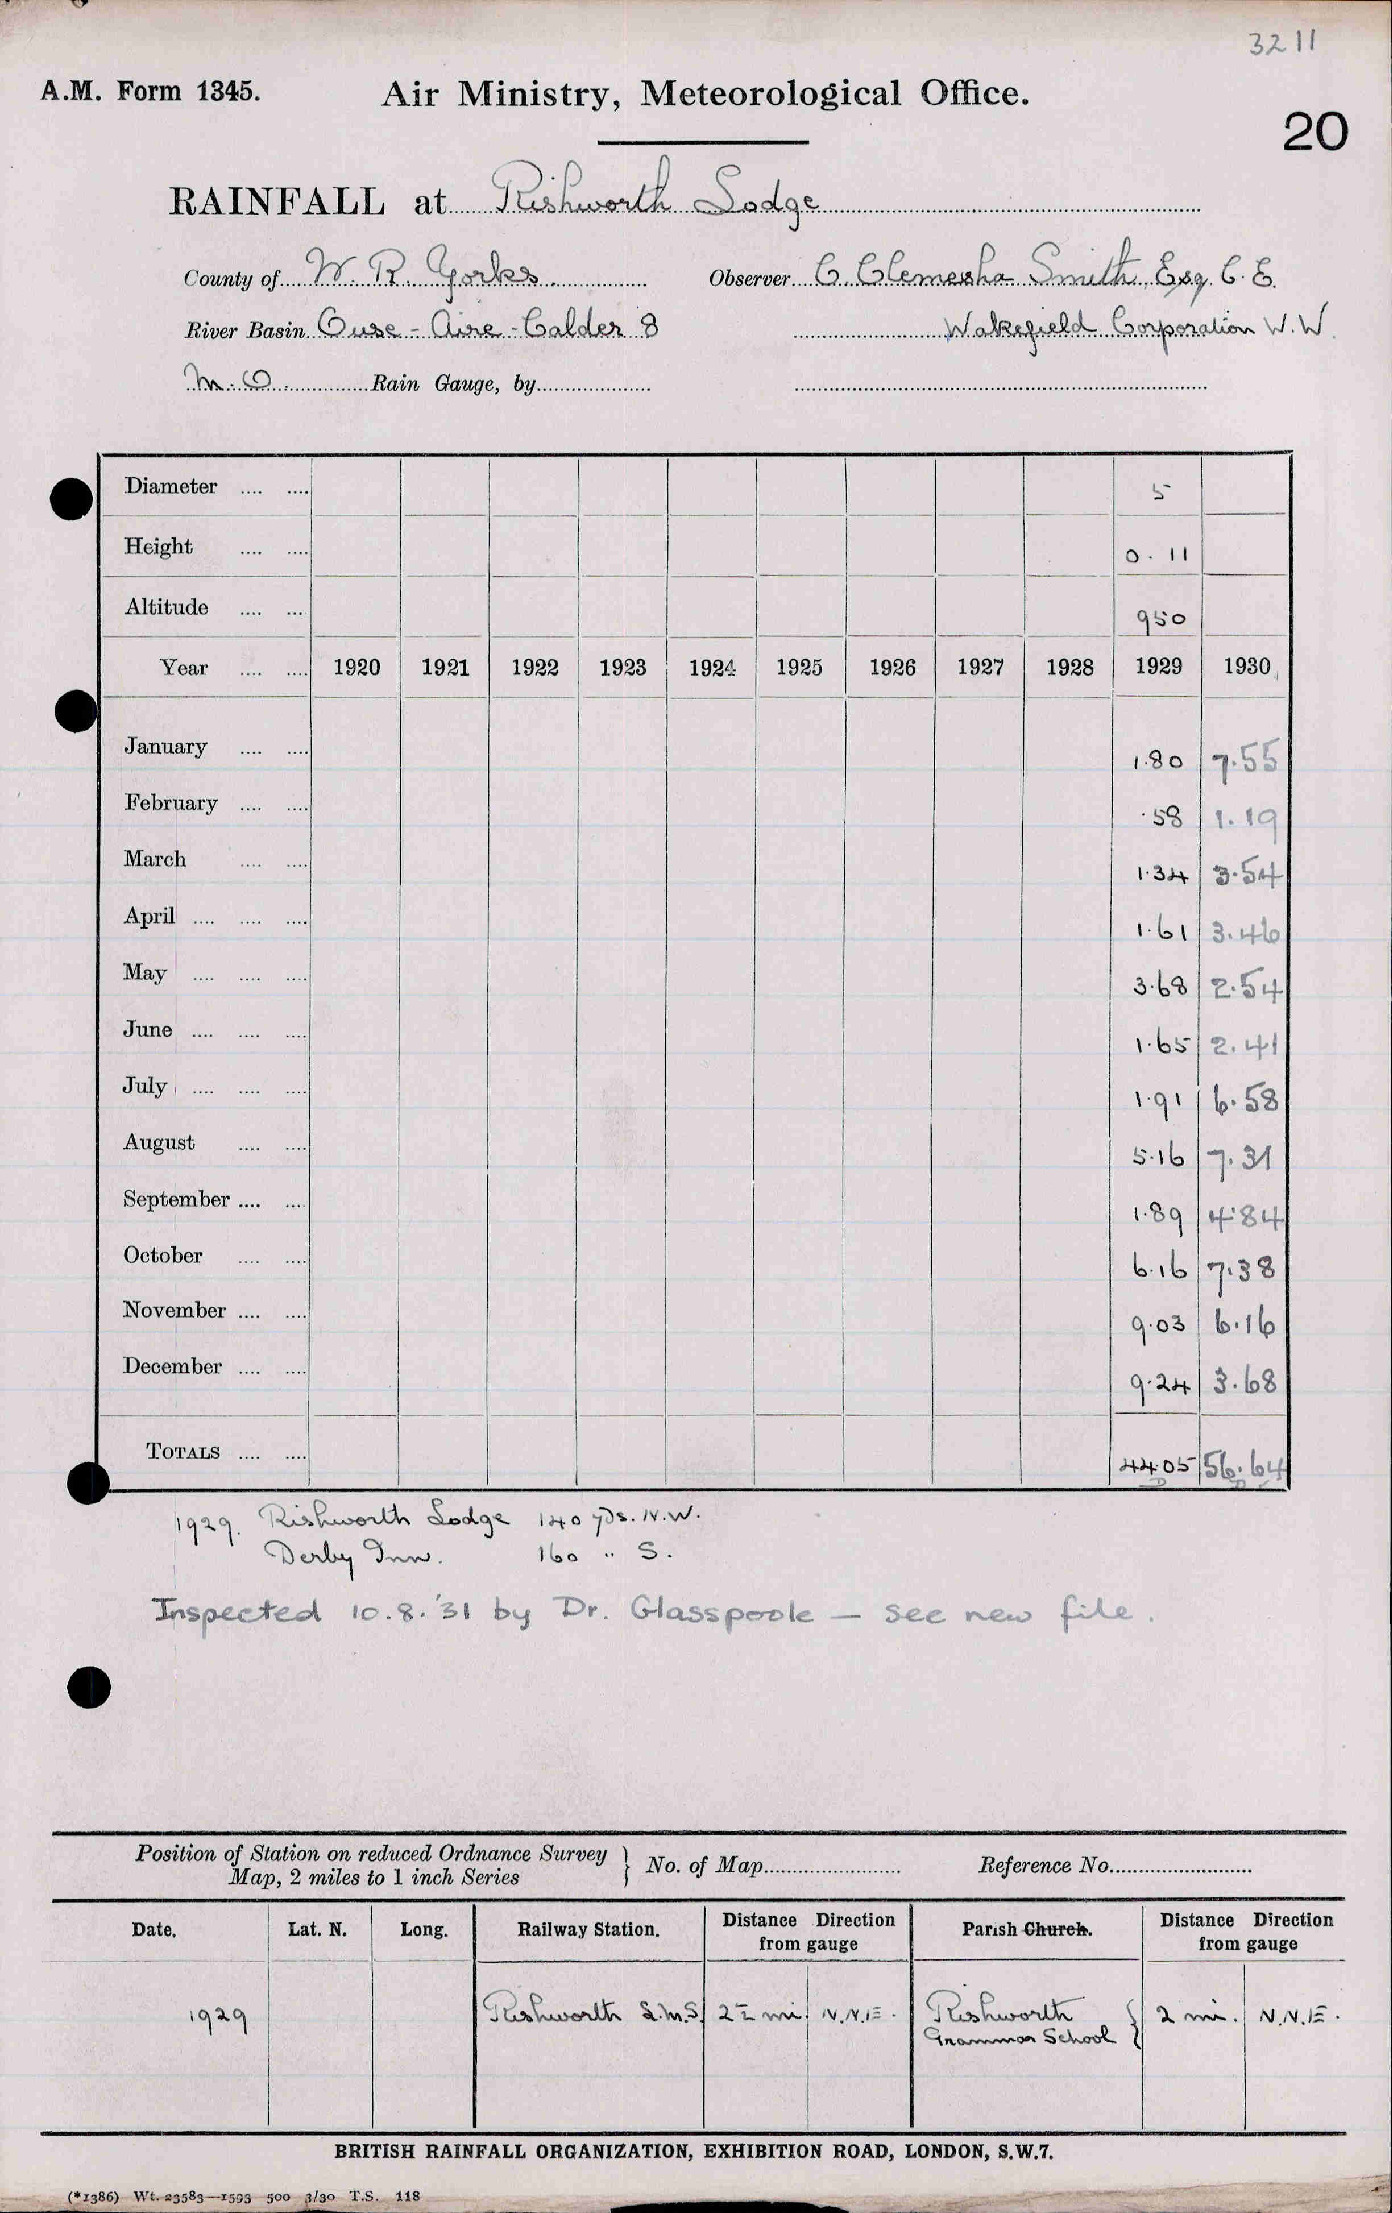 3211
A.M. Form 1345.
Air Ministry, Meteorological Office.
20
RAINFALL at Rishworth Lodge
County of W. R. Yorks. Observer C. Clemesha Smith, Esq. C. E.
River Basin Ouse - Aire - Calder 8 Wakefield Corporation W. W.
M. O. Rain Gauge, by
Diameter .... .... 5
Height .... .... 0. 11
Altitude .... .... 950
Year .... .... 1920 1921 1922 1923 1924 1925 1926 1927 1928 1929 1930
January .... .... 1.80 7.55
February .... .... .58 1.19
March .... .... 1.34 3.54
April .... .... .... 1.61 3.46
May .... .... .... 3.68 2.54
June .... .... .... 1.65 2.41
July .... .... .... 1.91 6.58
August .... .... 5.16 7.31
September .... .... 1.89 4.84
October .... .... 6.16 7.38
November .... .... 9.03 6.16
December .... .... 9.24 3.68
TOTALS .... .... 44.05 56.64
1929. Rishworth Lodge 140 yds. N.W.
Derby Inn. 160 " S.
Inspected 10.8.'31 by Dr. Glasspoole — see new file.
Position of Station on reduced Ordnance Survey
Map, 2 miles to 1 inch Series } No. of Map Reference No.
Date. Lat. N. Long. Railway Station. Distance Direction from gauge Parish Church. Distance Direction from gauge
1929 Rishworth L.M.S. 2½ mi. N.N.E. Rishworth Grammar School } 2 mi. N.N.E.
BRITISH RAINFALL ORGANIZATION, EXHIBITION ROAD, LONDON, S.W.7.
(*1386) Wt. 23583—1593 500 3/30 T.S. 118